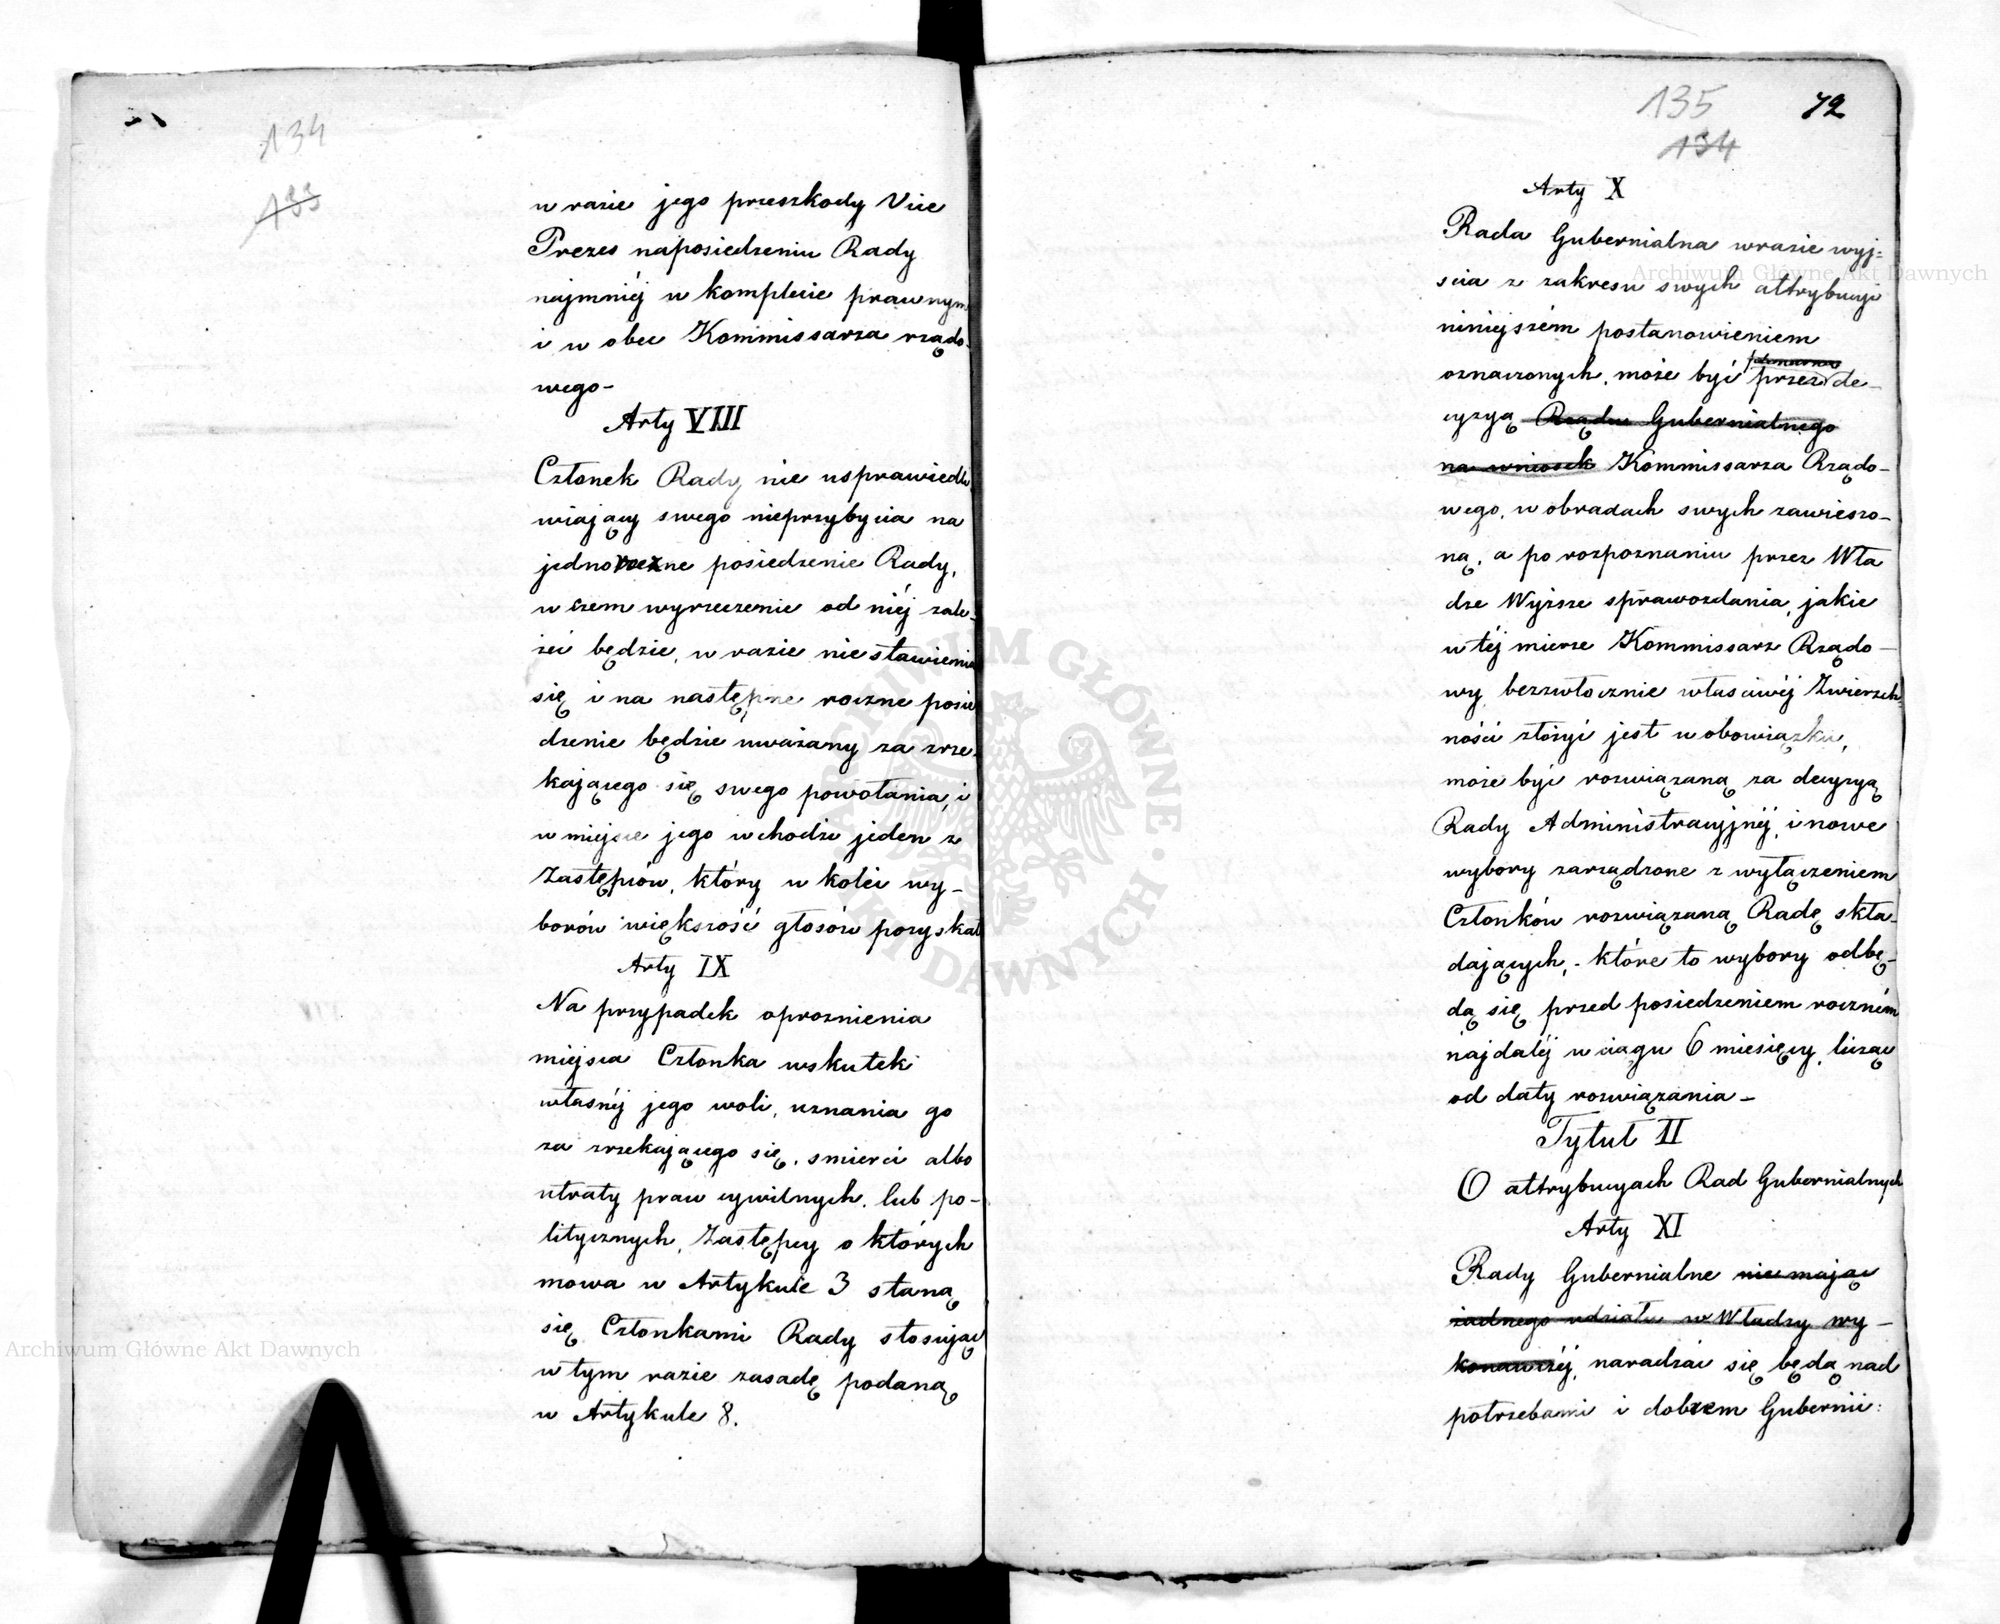 134
133
w razie jego przeszkody Vice
Prezes naposiedzeniu Rady
najmniéj w komplecie prawnym
i w obec Kommissarza rządo-
wego-
Arty VIII
Członek Rady nie usprawiedli
wiający swego nieprzybycia na
jednoroczne posiedzenie Rady,
w czem wyrzeczenie od niéj zale-
żeć będzie, w razie nie stawienia
się i na następne roczne posie
dzenie będzie uważany za zrze-
kającego się swego powołania, i
w miejsce jego wchodzi jeden z
Zastępców, który w kolei wy-
borów większość głosów pozyskał
Arty IX
Na przypadek oproznienia
miejsca Członka wskutek
własnéj jego woli, uznania go
za zrzekającego się, smierci albo
utraty praw cywilnych, lub po-
litycznych, Zastępcy o których
mowa w Artykule 3 staną
się Członkami Rady stosując
w tym razie zasadę podaną
w Artykule 8.
135
72
134
Arty X
Rada Gubernialna wrazie wyj=
scia z zakresu swych attrybucyi
niniejszém postanowieniem
oznaczonych, może być przez de-
cyzyą Rządu Gubernialnego
na wniosek Kommissarza Rządo-
wego, w obradach swych zawieszo-
ną, a po rozpoznaniu przez Wła
dze Wyższe sprawozdania, jakie
w téj mierze Kommissarz Rządo-
wy bezzwłocznie właściwéj Zwierzch
ności złożyć jest w obowiązku,
może być rozwiązaną za decyzyą
Rady Administracyjnéj, i nowe
wybory zarządzone z wyłączeniem
Członków rozwiązaną Radę skła-
dających, - które to wybory odbę-
dą się przed posiedzeniem roczném
najdaléj w ciągu 6 miesięcy, licząc
od daty rozwiązania -
Tytuł II
O attrybucyach Rad Gubernialnych
Arty XI
Rady Gubernialne nie mając
żadnego udziału w Władzy wy-
konawczéj, naradzać się będą nad
potrzebami i dobrem Gubernii:
Archiwum Główne Akt Dawnych
Archiwum Główne Akt Dawnych
ARCHIWUM GŁÓWNE AKT DAWNYCH